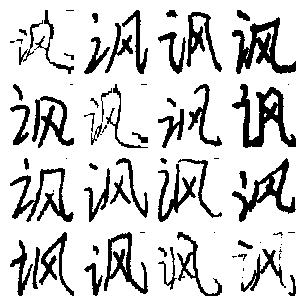 讽讽讽讽
讽讽讽讽
讽讽讽讽
讽讽讽讽